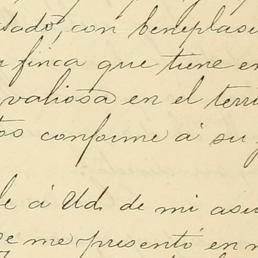 stado, con beneplaci
finca que tiene en
valiosa en el terri
os conforme á su
le á Ud. de mi asu
se me presentó en m